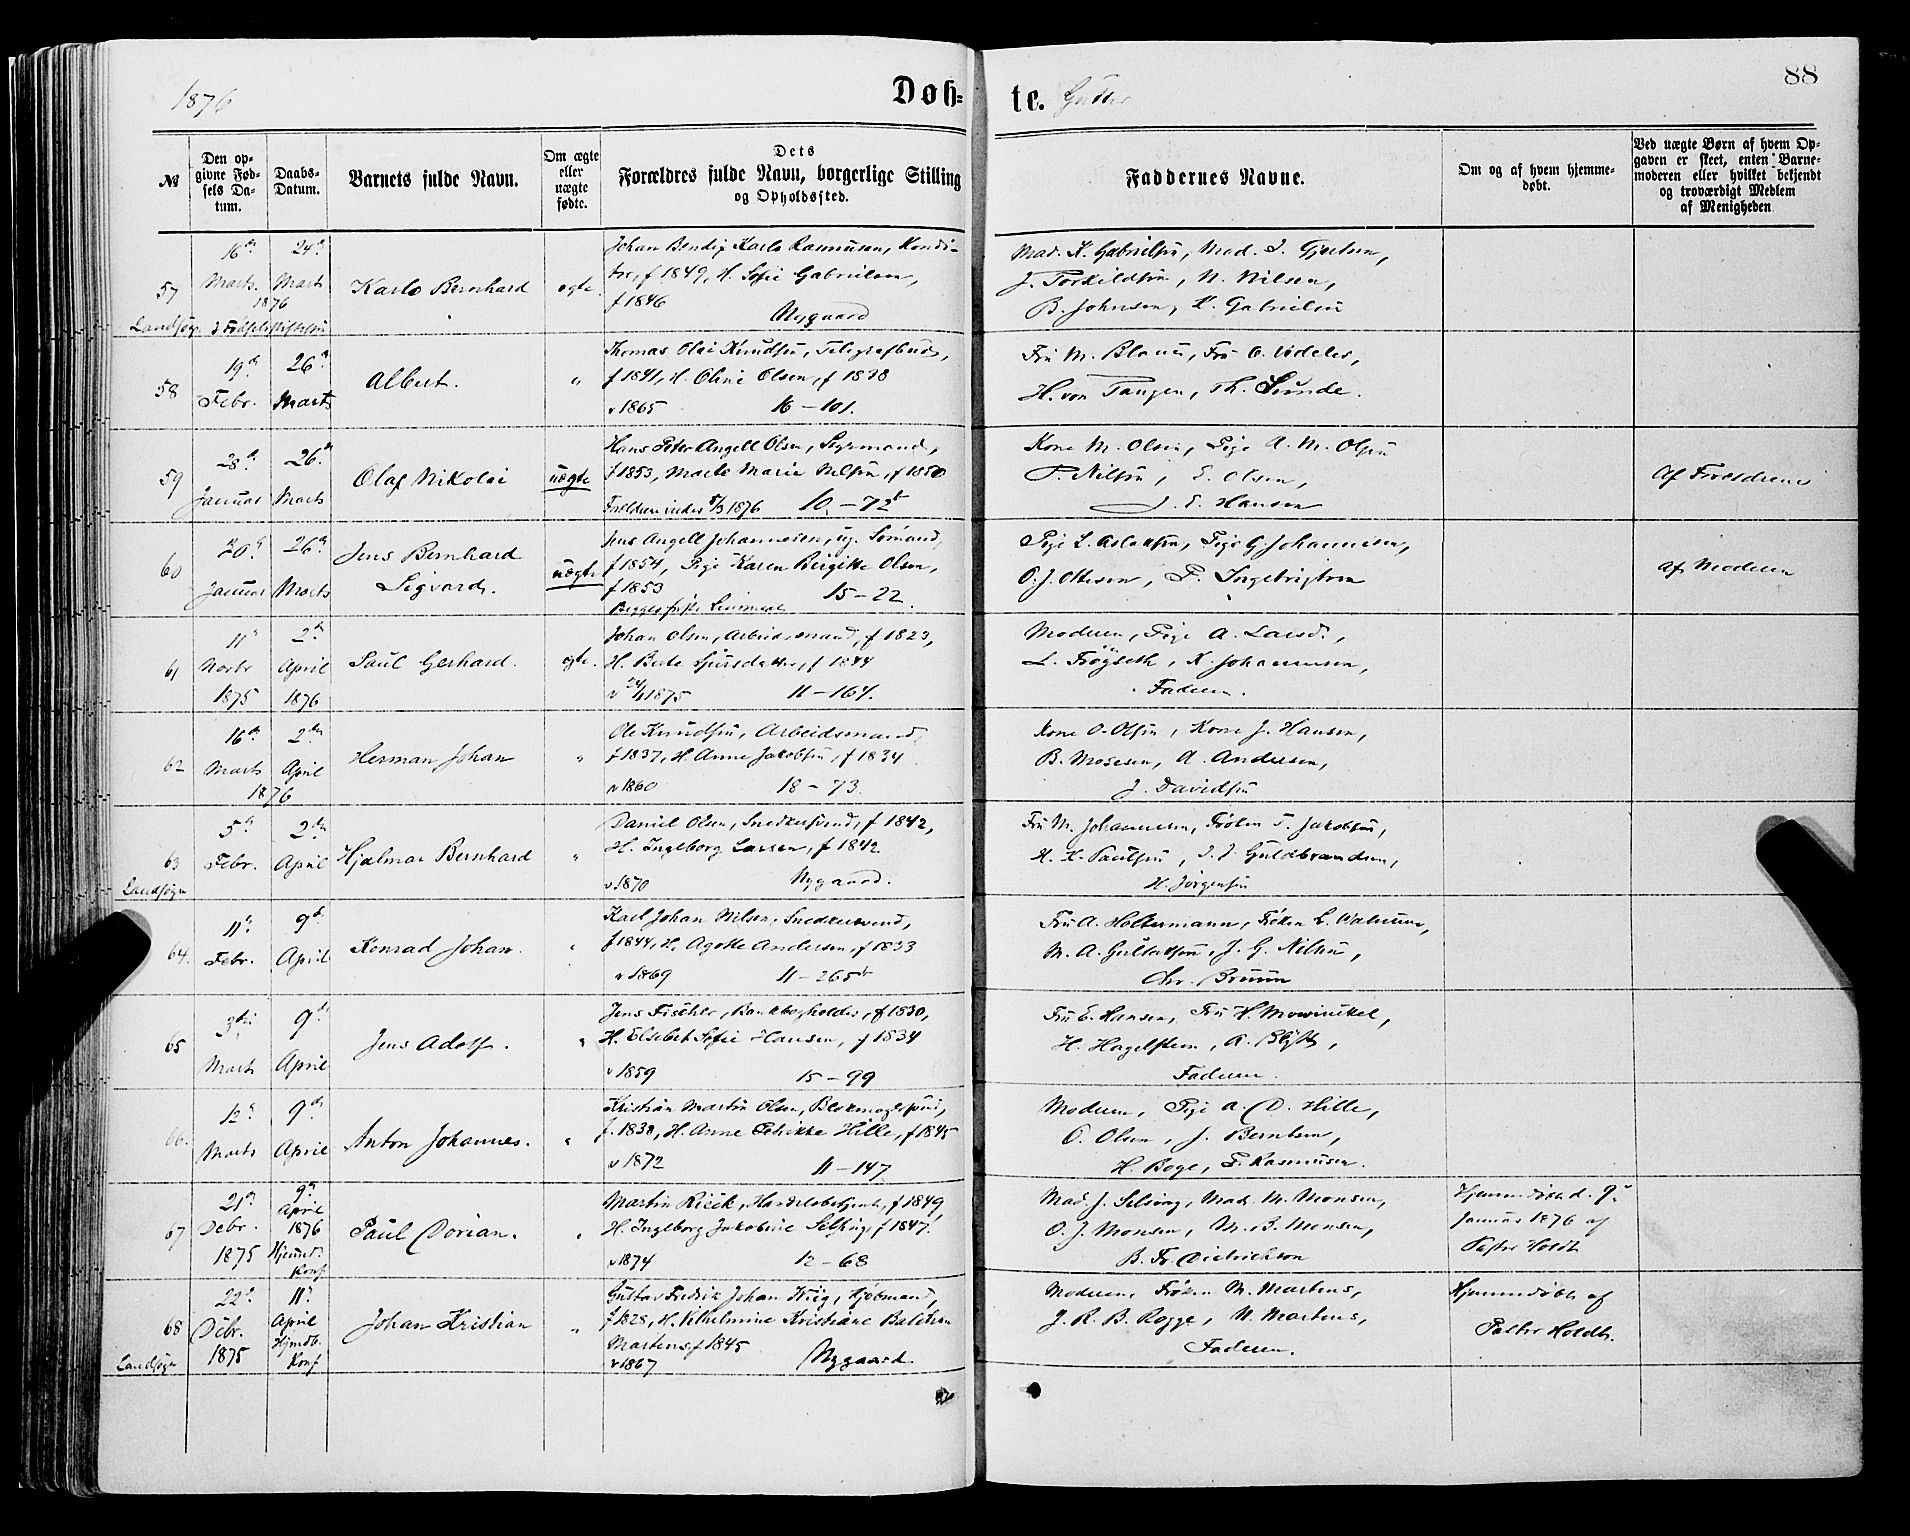 1876
Døb=
te. Gutter
88
№
Den op=
givne Fød=
sels Da=
tum.
Daabs-
Datum.
Barnets fulde Navn.
Om ægte
eller
uægte
fødte.
Dets
Forældres fulde Navn, borgerlige Stilling
og Opholdssted.
Faddernes Navne.
Om og af hvem hjemme-
døbt.
Ved uægte Børn af hvem Op-
gaven er skeet, enten Barne-
moderen eller hvilket bekjendt
og troværdigt Medlem
af Menigheden
57
Landsogn
16de
Marts
24de
Marts
1876
Karlo Bernhard
egte.
Johan Bendix Karlo Rasmussen, Kondi-
tor, f 1849, H. Sofie Gabrielsen,
f 1846
Nygaard
Mad. K. Gabrielsen, Mad. J.
J. Torkildsen, N. Nilsen,
B. Johnsen, K. Gabrielsen
58
19de
Febr.
26de
Marts
Albert.
"
Thomas Olai Knudsen, Telegrafbud,
f 1841, H. Oline Olsen, f 1838
v 1865 16 – 101.
Fru M. Blauu, Fru
H. von Tangen, Th. Sunde.
59
28de
Januar
26de
Marts
Olaf Nikolai
uægte
Hans Peter Angell Olsen, Styrmand,
f 1853, Marte Marie Nilsen, f 1850
1876 10 – 72b
Kone M. Olsen, Pige A. M. Olsen
P. Nilsen, E. Olsen,
J. E. Hansen
Af Forældrene
60
20de
Januar
26de
Marts
Jens Bernhard
Sigvard.
uægte
Jens Angell Johannesen, ug. Sømand,
f 1854, Pige Karen Birgitte Olsen,
f 1853 15 – 22.
Begges første Leiermaal
Pige L. Aslaksen, Pige G. Johannesen,
O. J. Ottesen, P. Ingebrigtsen
Af Moderen
61
11te
Novbr
1875
2den
April
1876
Paul Gerhard.
egte.
Johan Olsen, Arbeidsmand, f 1823,
H. Berte Sjursdatter, f 1844
1875 11 – 164.
Moderen, Pige A. Larsd.,
L. Frøyseth, K. Johannesen,
Faderen.
62
16de
Marts
2den
April
1876
Herman Johan
"
Ole Knudsen, Arbeidsmand,
f 1837, H. Anne Jakobsen, f 1834
v 1860 18 – 73.
Kone O. Olsen, Kone J. Hansen,
B. Mosesen, A. Andersen,
J. Davidsen
63
Landsogn
5te
Febr.
2den
April
Hjalmar Bernhard
"
Daniel Olsen, Snedkersvend, f 1842,
H. Ingeborg Larsen, f 1842
v 1870 Nygaard.
Fru M. Johannesen, Frøken T. Jakobsen,
H. K. Paulsen, J. J. Guldbrandsen,
H. Jørgensen
64.
11te
Febr.
9de
April
Konrad Johan.
"
Karl Johan Nilsen, Snedkersvend,
f 1844, H. Agate Andersen, f 1833
v 1869 11 – 265b
Fru A. Holtermann, Frøken L.
M. A. Gullaksen, J. G. Nilsen,
Chr. Bruun
65
3die
Marts
9de
April
Jens Adolf.
"
Jens Fischer, Bankbogholder, f 1830,
H. Elsebet Sofie Hansen, f 1834
v 1859 15 – 99
Fru E. Hansen, Fru H. Mowinckel,
H. Hagelsteen, A. Blytt,
Faderen.
66.
12te
Marts
9de
April
Anton Johannes.
"
Kristian Martin Olsen, Blokmagersvend,
f. 1838, H. Anne Petrikke Hille, f 1845
v 1872 11 – 147
Moderen, Pige A. D. Hille,
O. Olsen, J. Berntsen,
H. Boge, P. Rasmussen.
67
21de
Debr.
1875
9de
April
1876
Hjemd.
Konf
Paul Dorian.
"
Martin Rieck, Handelsbetjent, f 1849,
H. Ingeborg Jakobine Selfing, f 1847.
v 1874 12 – 68
Mad. J. Selving, Mad. M. Monsen,
O. J. Monsen, M. B. Monsen,
B. Fr. Diedrichson
Hjemmedøbt d. 9de
Januar 1876 af
Pastor Holdt
68
Landsogn
22de
Debr.
1875
11te
April
Hjmdb.
Konf
Johan Kristian
"
Gustav Fredrik Johan Krig, Kjøbmand,
f 1828, H. Vilhelmine Kristiane Balchen
Martens f 1845
v 1867 Nygaard
Moderen, Frøken M. Martens,
J. R. B. Rogge, N. Martens,
Faderen.
Hjemmedøbt af
Pastor Holdt.